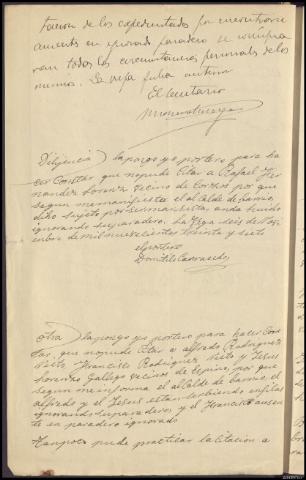 tacion de los expedientados por encontrarse
ausentes en ignorado paradero se
van todas las circunstancias personales de los
mismos. La Vega fecha anterior
El Secretario
Diligencia) La pongo yo portero para ha-
cer constar que no pude citar a Rafael Her-
nandez Lorenzo vecino de Corzos por que
segun me manifiesta el alcalde de barrio,
dicho sujeto por ser marxista, anda huido
ignorando su paradero. La Vega seis de
de mil novecientos treinta y siete
El portero
Domitilo
Otra) La pongo yo portero para hacer cons-
tar, que no pude citar a Alfredo Rodriguez
Prieto, Francisco Rodriguez Prieto y Jesus
Lorenzo Gallego vecinos de Espino, por que
segun me informa el alcalde de barrio el
Alfredo y el Jesus estan
ignorando su paradero y el Francisco ausen-
te en paradero ignorado
Tampoco pude practicar la citacion a